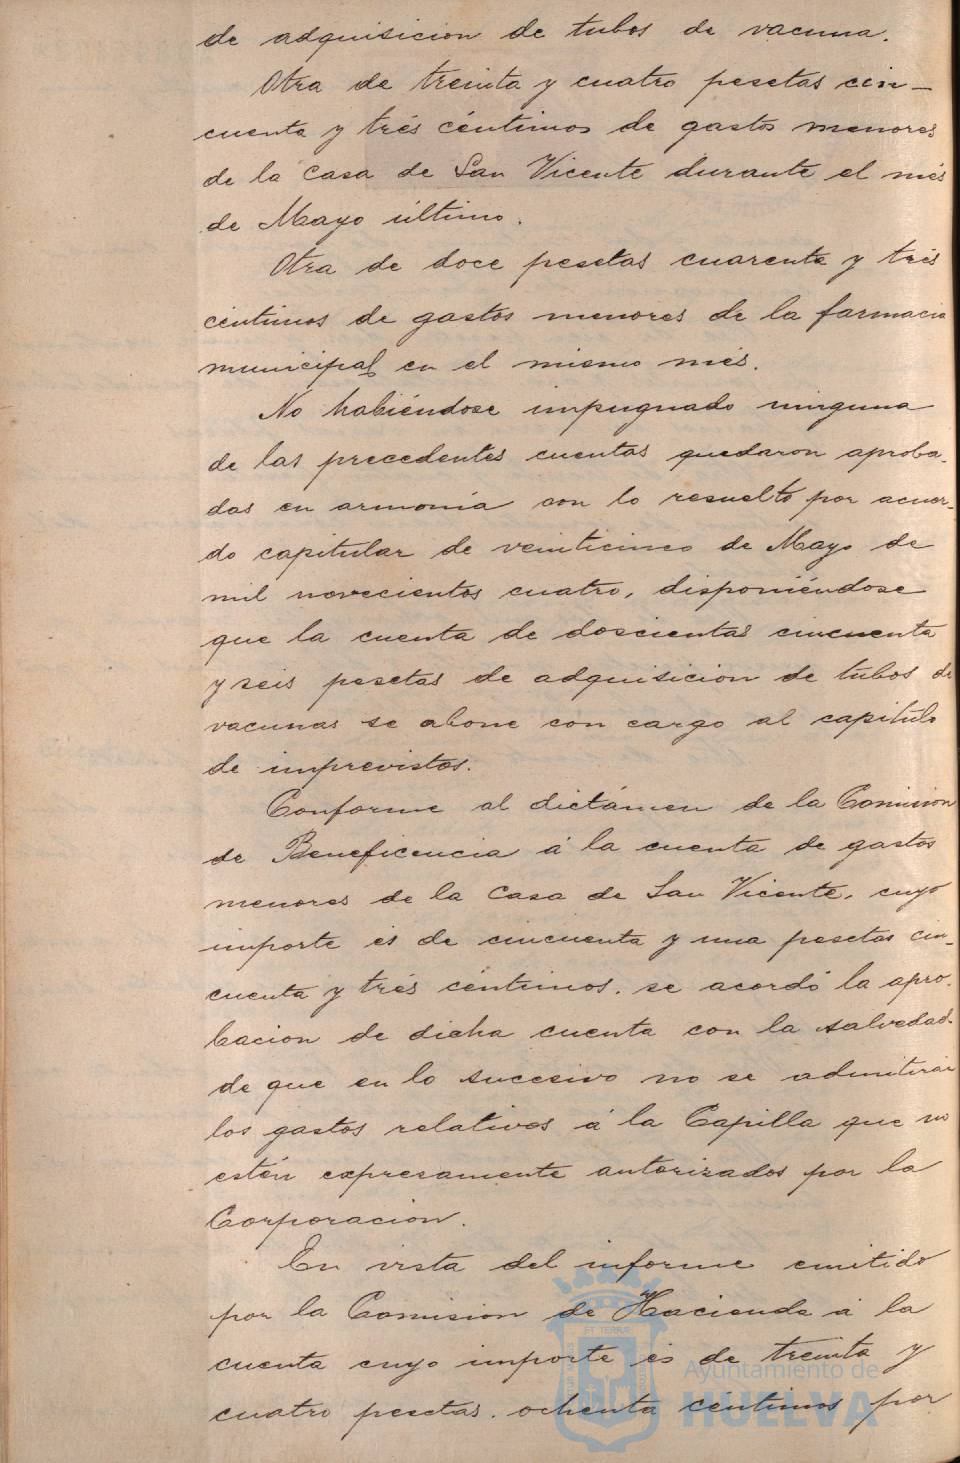 de adquisicion de tubos de vacuna.
Otra de treinta y cuatro pesetas cin-
cuenta y trés céntimos de gastos menores
de la Casa de San Vicente durante el més
de Mayo último.
Otra de doce pesetas cuarenta y trés
céntimos de gastos menores de la farmacia
municipal en el mismo més.
No habiéndose impugnado ninguna
de las precedentes cuentas quedaron aproba-
das en armonía con lo resuelto por acuer-
do capitular de veinticinco de Mayo de
mil novecientos cuatro, disponiéndose
que la cuenta de doscientas cincuenta
y seis pesetas de adquisicion de tubos de
vacunas se abone con cargo al capítulo
de imprevistos.
Conforme al dictámen de la Comision
de Beneficencia á la cuenta de gastos
menores de la Casa de San Vicente, cuyo
importe és de cincuenta y una pesetas cin-
cuenta y trés céntimos. se acordó la apro-
bacion de dicha cuenta con la salvedad
de que en lo sucesivo no se admitirán
los gastos relativos á la Capilla que no
estén expresamente autorizados por la
Corporacion.
En vista del informe emitido
por la Comision de Hacienda á la
cuenta cuyo importe és de treinta y
cuatro pesetas. ochenta céntimos por
Ayuntamiento de
HUELVA